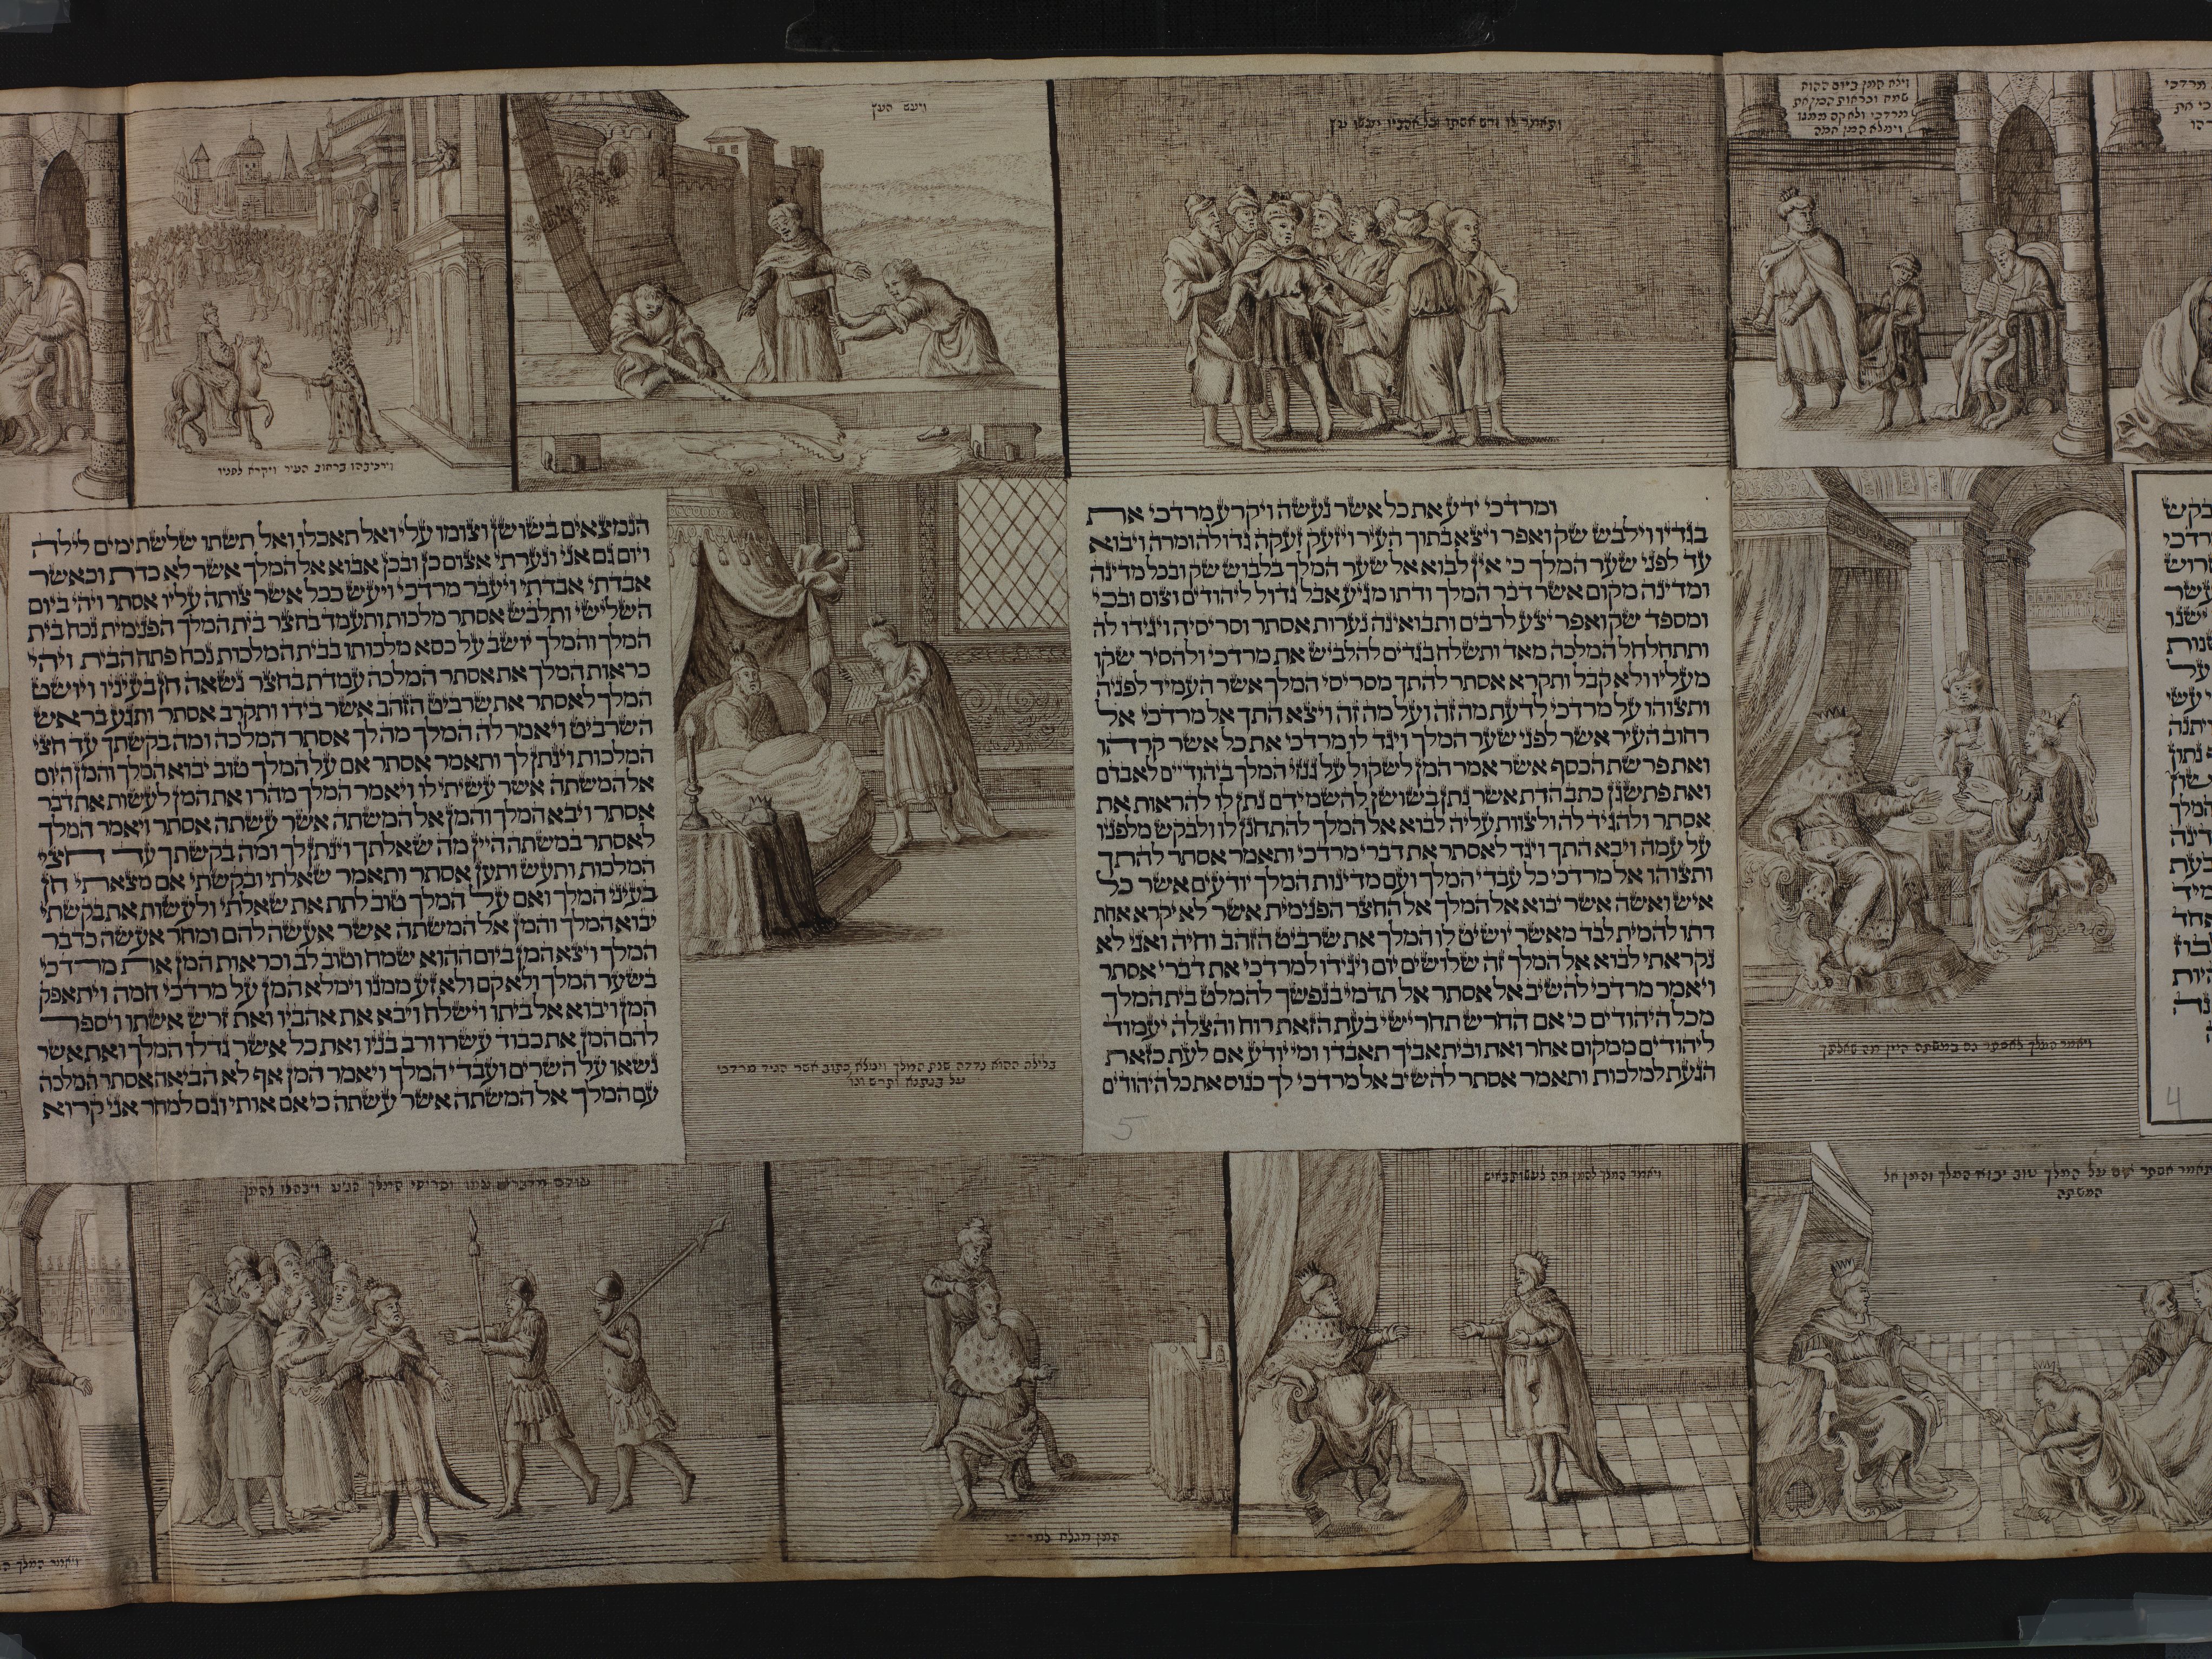 וילא המן ביום ההוא
שמח וכראות המן את
מרדכי ולא קם ממנו
וימלא המן חמה
ותאמר לו זרש אשתו וכל אהביו יעשו עץ
ויעש העץ
וירכיבהו ברחוב העיר ויקרא לפניו
ומרדכי ידע את כל אשר נעשה ויקרע מרדכי את
בגדיו וילבש שק ואפר ויצא בתוך העיר ויזעק זעקה גדולה ומרה ויבוא
עד לפני שער המלך כי אין לבוא אל שער המלך בלבוש שק ובכל מדינה
ומדינה מקום אשר דבר המלך ודתו מגיע אבל גדול ליהודים וצום ובכי
ומספד שק ואפר יצע לרבים ותבואינה נערות אסתר וסריסיה ויגידו לה
ותתחלחל המלכה מאד ותשלח בגדים להלביש את מרדכי ולהסיר שקו
מעליו ולא קבל ותקרא אסתר להתך מסריסי המלך אשר העמיד לפניה
ותצוהו על מרדכי לדעת מה זה ועל מה זה ויצא התך אל מרדכי אל
רחוב העיר אשר לפני שער המלך ויגד לו מרדכי את כל אשר קרהו
ואת פרשת הכסף אשר אמר המן לשקול על גנזי המלך ביהודיים לאבדם
ואת פתשגן כתב הדת אשר נתן בשושן להשמידם נתן לו להראות את
אסתר ולהגיד לה ולצוות עליה לבוא אל המלך להתחנן לו ולבקש מלפניו
על עמה ויבא התך ויגד לאסתר את דברי מרדכי ותאמר אסתר להתך
ותצוהו אל מרדכי כל עבדי המלך ועם מדינות המלך יודעים אשר כל
איש ואשה אשר יבוא אל המלך אל החצר הפנימית אשר לא יקרא אחת
דתו להמית לבד מאשר יושיט לו המלך את שרביט הזהב וחיה ואני לא
נקראתי לבוא אל המלך זה שלושים יום ויגידו למרדכי את דברי אסתר
ויאמר מרדכי להשיב אל אסתר אל תדמי בנפשך להמלט בית המלך
מכל היהודים כי אם החרש תחרישי בעת הזאת רוח והצלה יעמוד
ליהודים ממקום אחר ואת ובית אביך תאבדו ומי יודע אם לעת כזאת
הגעת למלכות ותאמר אסתר להשיב אל מרדכי לך כנוס את כל היהודים
5
4
ויאמר המלך לאסתר גם במשתה היין מה שאלתך
בלילה ההוא נדדה שנת המלך וימצא כתוב אשר הגיד מרדכי
על בגתנא ותרש וגו
הנמצאים בשושן וצומו עלי ואל תאכלו ואל תשתו שלשת ימים לילה
ויום גם אני ונערתי אצום כן ובכן אבוא אל המלך אשר לא כדת וכאשר
אבדתי אבדתי ויעבר מרדכי ויעש ככל אשר צותה עליו אסתר ויהי ביום
השלישי ותלבש אסתר מלכות ותעמד בחצר בית המלך הפנימית נכח בית
המלך והמלך יושב על כסא מלכותו בבית המלכות נכח פתח הבית ויהי
כראות המלך את אסתר המלכה עמדת בחצר נשאה חן בעיניו ויושט
המלך לאסתר את שרביט הזהב אשר בידו ותקרב אסתר ותגע בראש
השרביט ויאמר לה המלך מה לך אסתר המלכה ומה בקשתך עד חצי
המלכות וינתן לך ותאמר אסתר אם על המלך טוב יבוא המלך והמן היום
אל המשתה אשר עשיתי לו ויאמר המלך מהרו את המן לעשות את דבר
אסתר ויבא המלך והמן אל המשתה אשר עשתה אסתר ויאמר המלך
לאסתר במשתה היין מה שאלתך וינתן לך ומה בקשתך עד חצי
המלכות ותעש ותען אסתר ותאמר שאלתי ובקשתי אם מצאתי חן
בעיני המלך ואם על המלך טוב לתת את שאלתי ולעשות את בקשתי
יבוא המלך והמן אל המשתה אשר אעשה להם ומחר אעשה כדבר
המלך ויצא המן ביום ההוא שמח וטוב לב וכראות המן את מרדכי
בשער המלך ולא קם ולא זע ממנו וימלא המן על מרדכי חמה ויתאפק
המן ויבוא אל ביתו וישלח ויבא את אהביו ואת זרש אשתו ויספר
להם המן את כבוד עשרו ורב בניו ואת כל אשר גדלו המלך ואת אשר
נשאו על השרים ועבדי המלך ויאמר המן אף לא הביאה אסתר המלכה
עם המלך אל המשתה אשר עשתה כי אם אותי וגם למחר אני קרוא
ותאמר אסתר אם על המלך טוב יבוא המלך והמן אל
המשתה
ויאמר המלך להמן מה לעשות באיש
המן מגלח למרדכי
עודם מדברים עמו וסריסי המלך הגיעו ויבהלו להמן
ויאמר המלך